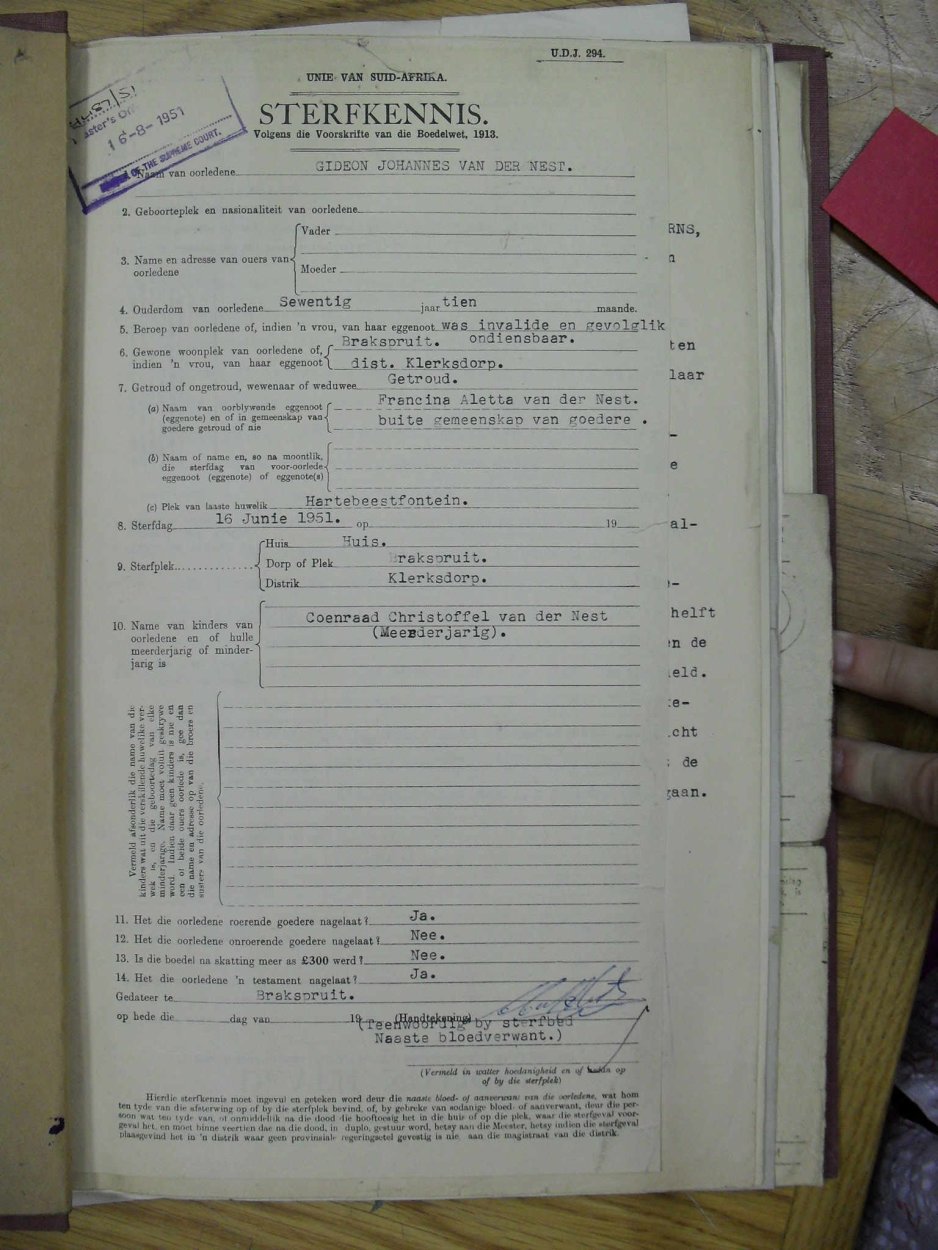 U.D.J. 294.
UNIE VAN SUID-AFRIKA.
STERFKENNIS.
Volgens die Voorskrifte van die Boedelwet, 1913.
16-8-1951
OF THE SUPREME COURT.
Naam van oorledene GIDEON JOHANNES VAN DER NEST.
2. Geboorteplek en nasionaliteit van oorledene
3. Name en adresse van ouers van oorledene
Vader
Moeder
4. Ouderdom van oorledene Sewentig jaar tien maande.
5. Beroep van oorledene of, indien 'n vrou, van haar eggenoot was invalide en gevolglik
ondiensbaar.
6. Gewone woonplek van oorledene of, Brakspruit.
indien 'n vrou, van haar eggenoot dist. Klerksdorp.
7. Getroud of ongetroud, wewenaar of weduwee Getroud.
(a) Naam van oorblywende eggenoot Francina Aletta van der Nest.
(eggenote) en of in gemeenskap van
goedere getroud of nie buite gemeenskap van goedere .
(b) Naam of name en, so na moontlik,
die sterfdag van voor-oorlede
eggenoot (eggenote) of eggenote(s)
(c) Plek van laaste huwelik Hartebeestfontein.
8. Sterfdag 16 Junie 1951. op 19
9. Sterfplek
Huis Huis.
Dorp of Plek Brakspruit.
Distrik Klerksdorp.
10. Name van kinders van
oorledene en of hulle
meerderjarig of minder-
jarig is
Coenraad Christoffel van der Nest
(Meerderjarig).
Vermeld afsonderlik die name van die
kinders wat uit die verskillende huwelike ver-
wek is, en die geboortedag van elke
minderjarige. Name moet voluit geskrywe
word. Indien daar geen kinders is nie en
een of beide ouers oorlede is, gee dan
die name en adresse op van die broers en
susters van die oorledene.
11. Het die oorledene roerende goedere nagelaat? Ja.
12. Het die oorledene onroerende goedere nagelaat? Nee.
13. Is die boedel na skatting meer as £300 werd? Nee.
14. Het die oorledene 'n testament nagelaat? Ja.
Gedateer te Brakspruit.
op hede die dag van 19 (Handtekening)
(Teenwoordig by sterfbed
Naaste bloedverwant.)
(Vermeld in watter hoedanigheid en of op
of by die sterfplek)
Hierdie sterfkennis moet ingevul en geteken word deur die naaste bloed- of aanverwant van die oorledene, wat hom
ten tyde van die afsterwing op of by die sterfplek bevind, of, by gebreke van sodanige bloed- of aanverwant, deur die per-
soon wat ten tyde van, of onmiddellik na die dood die hooftoesig het in die huis of op die plek, waar die sterfgeval voor-
geval het, en moet binne veertien dae na die dood, in duplo, gestuur word, hetsy aan die Meester, hetsy indien die sterfgeval
plaasgevind het in 'n distrik waar geen provinsiale regeringsetel gevestig is nie aan die magistraat van die distrik.
RNS,
ten
laar
al-
helft
en de
eld.
cht
de
gaan.